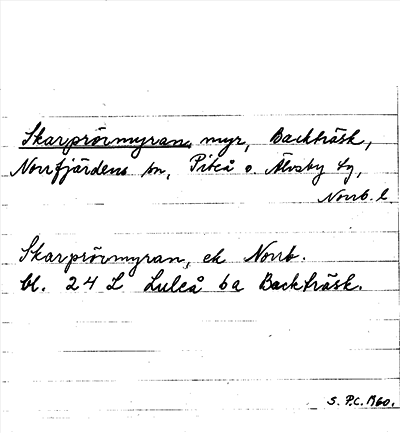 Skarprövmyran, myr, Backträsk,
Norrfjärdens sn, Piteå o. Älvsby tg,
Norrb. l.
Skarprövmyran, ek Norrb.
bl. 24 L Luleå 6a Backträsk.
S. P.C. 1960.